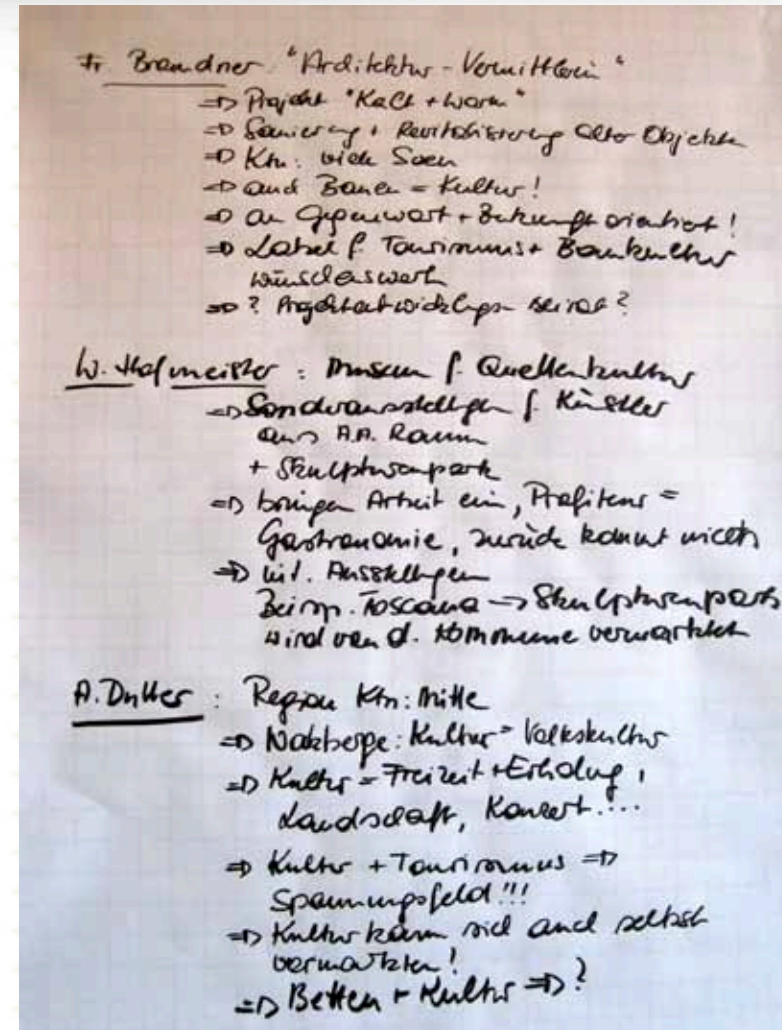 Fr. Brandner: "Architektur-Vermittlerin"
=> Projekt "Kalt + warm"
=> Sanierung + Revitalisierung alter Objekte
=> Ktn: viele Seen
=> auch Bauen = Kultur!
=> an Gegenwart + Zukunft orientiert!
=> Label f. Tourismus + Baukultur
wünschenswert
=> ? Projektentwicklungsbeirat?
W. Hofmeister: Museum f. Quellenkultur
=> Sonderausstellungen f. Künstler
aus A.A. Raum
+ Skulpturenpark
=> bringen Arbeit ein, Profiteur =
Gastronomie, zurück kommt nichts
=> int. Ausstellungen
Beisp. Toscana -> Skulpturenpark
wird von d. Kommune vermarktet
A. Duller: Region Ktn: Mitte
=> Nockberge: Kultur = Volkskultur
=> Kultur = Freizeit + Erholung,
Landschaft, Konzert....
=> Kultur + Tourismus =>
Spannungsfeld!!!
=> Kultur kann sich auch selbst
vermarkten!
=> Betten + Kultur => ?